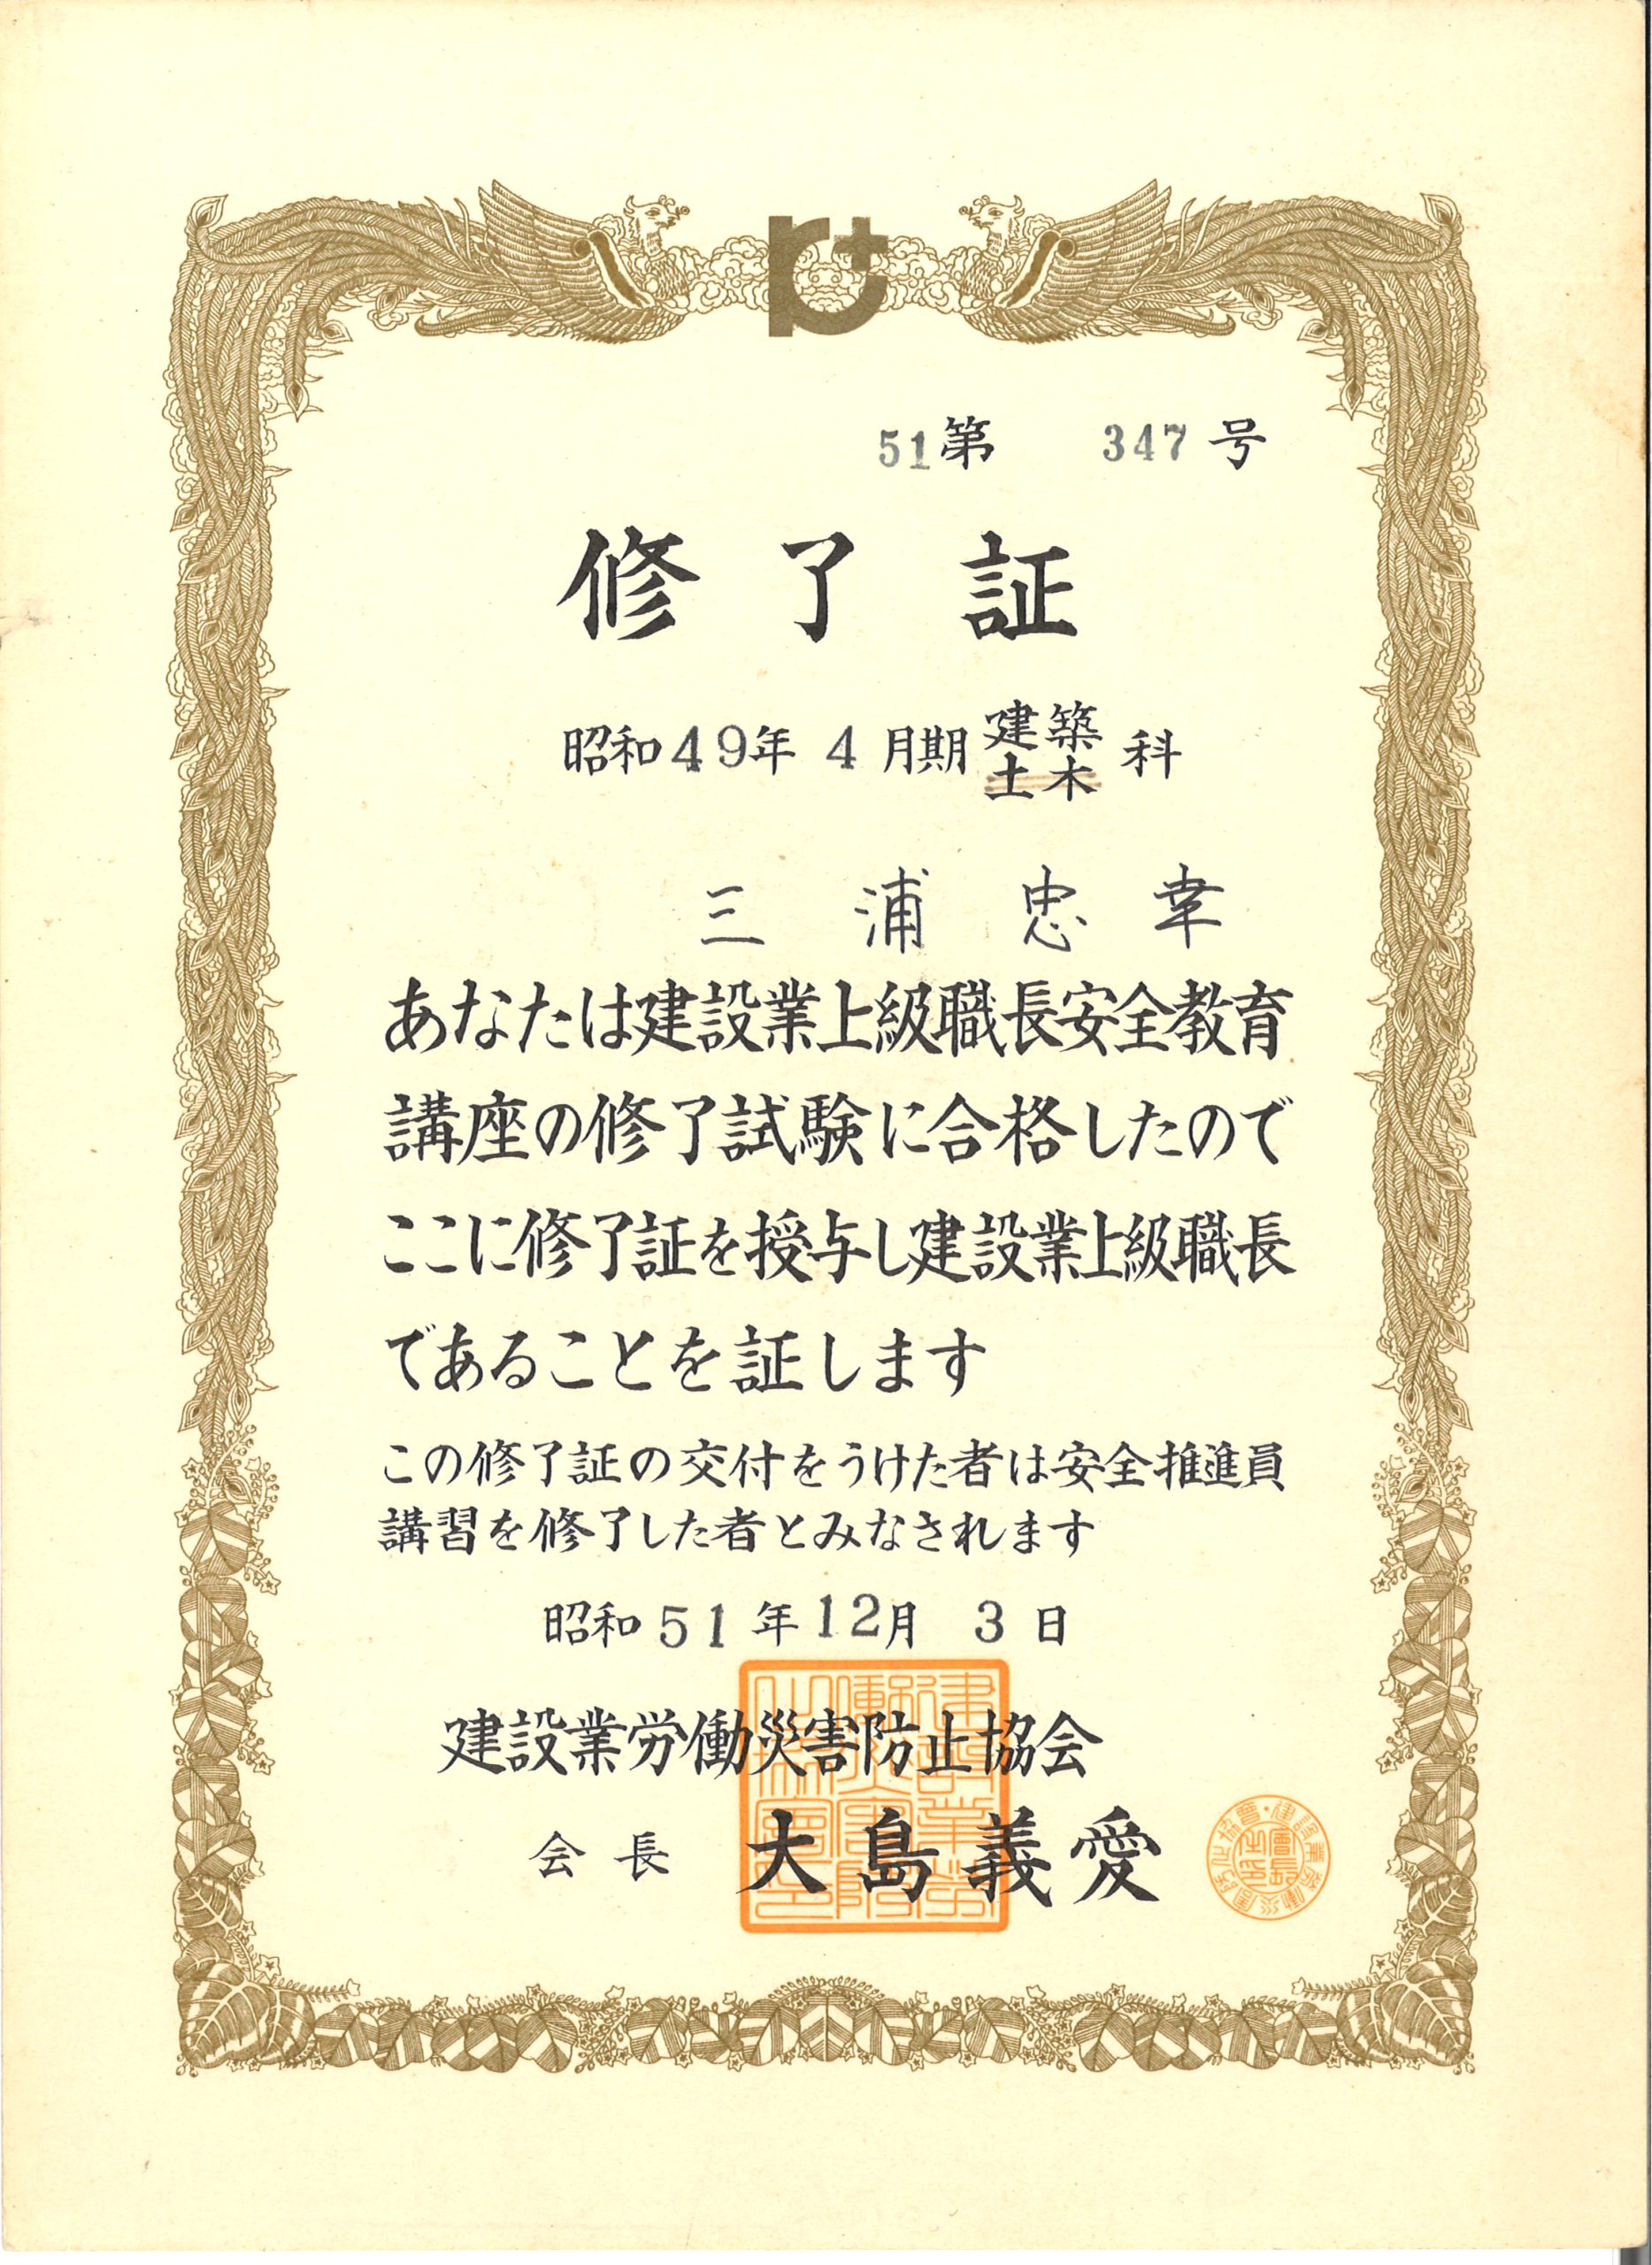 51第 347号
修了証
昭和49年 4月期 建築 土木 科
三浦忠幸
あなたは建設業上級職長安全教育
講座の修了試験に合格したので
ここに修了証を授与し建設業上級職長
であることを証します
この修了証の交付をうけた者は安全推進員
講習を修了した者とみなされます
昭和51年12月 3日
建設業労働災害防止協会
会長 大島義愛